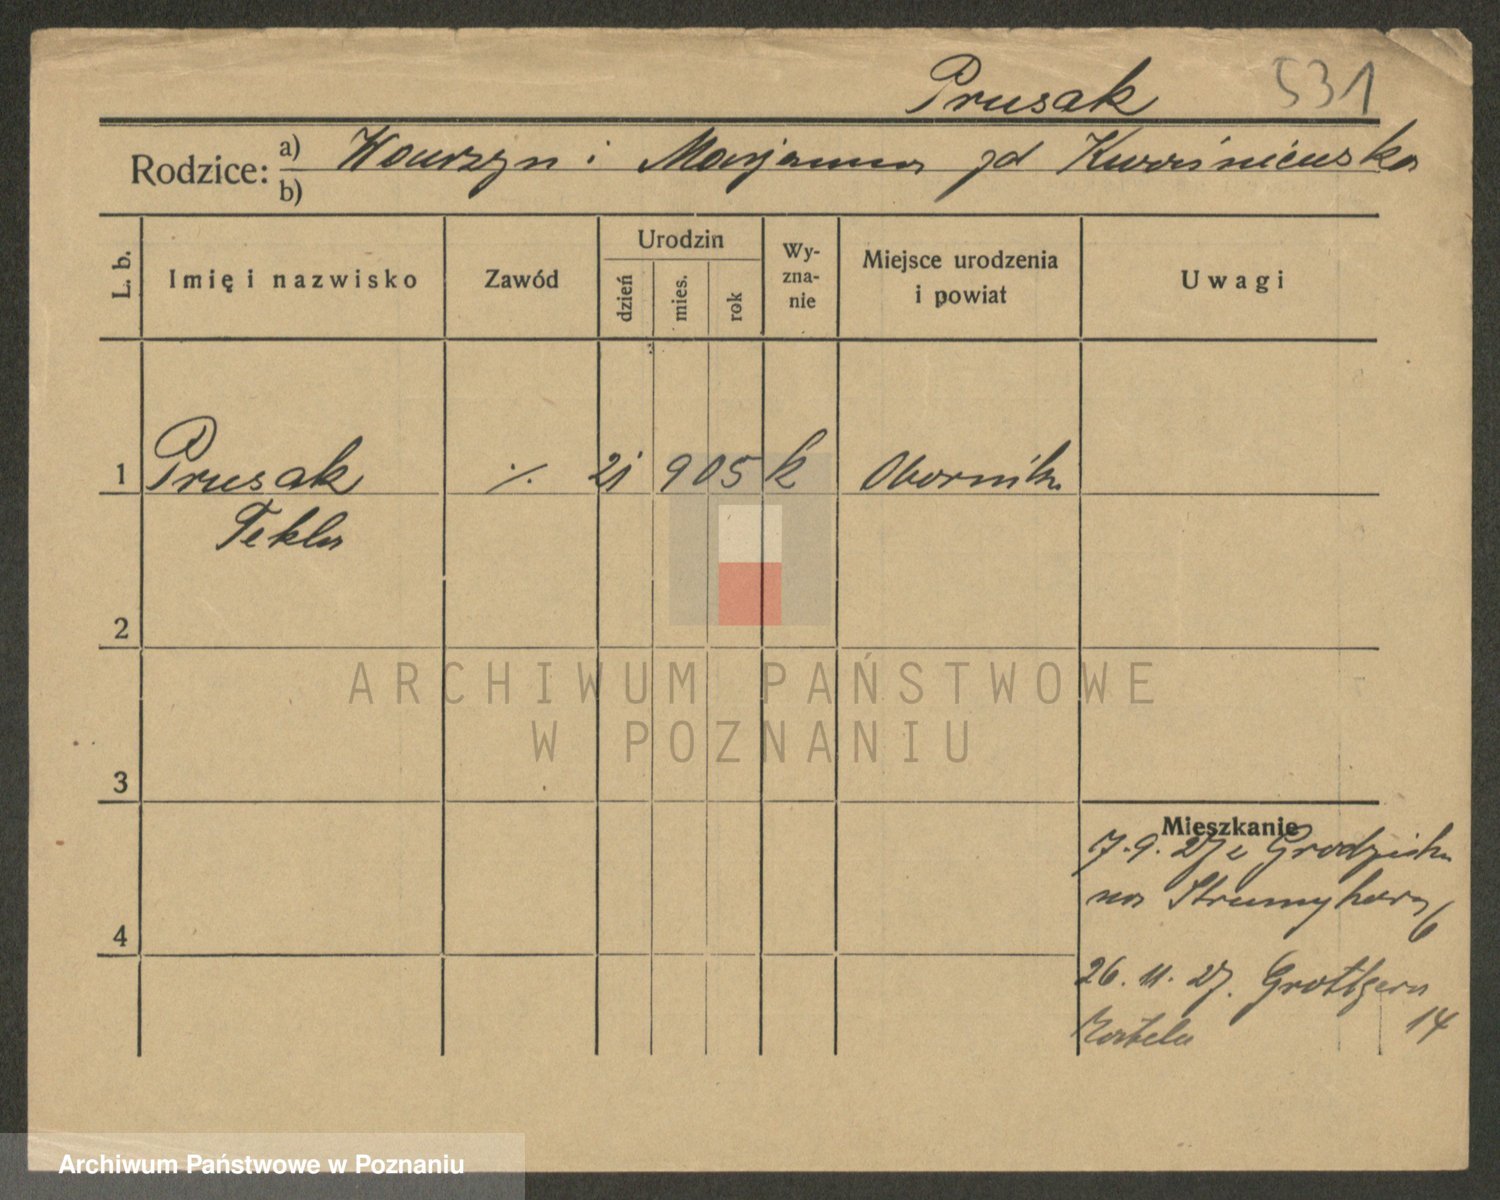 Prusak 531
Rodzice: a) Wawrzyn i Marjanna zd Kwaśniewska
b)
L. b. Imię i nazwisko Zawód Urodzin dzień mies. rok Wy-zna-nie Miejsce urodzenia i powiat Uwagi
1 Prusak ·/. 21 9 05 k Oborniki
Tekla
2
3
Mieszkanie
7.9.27 z Grodziska
na Strumykową 6
4
26.11.27. Grottgera
14
ARCHIWUM PAŃSTWOWE
W POZNANIU
Archiwum Państwowe w Poznaniu